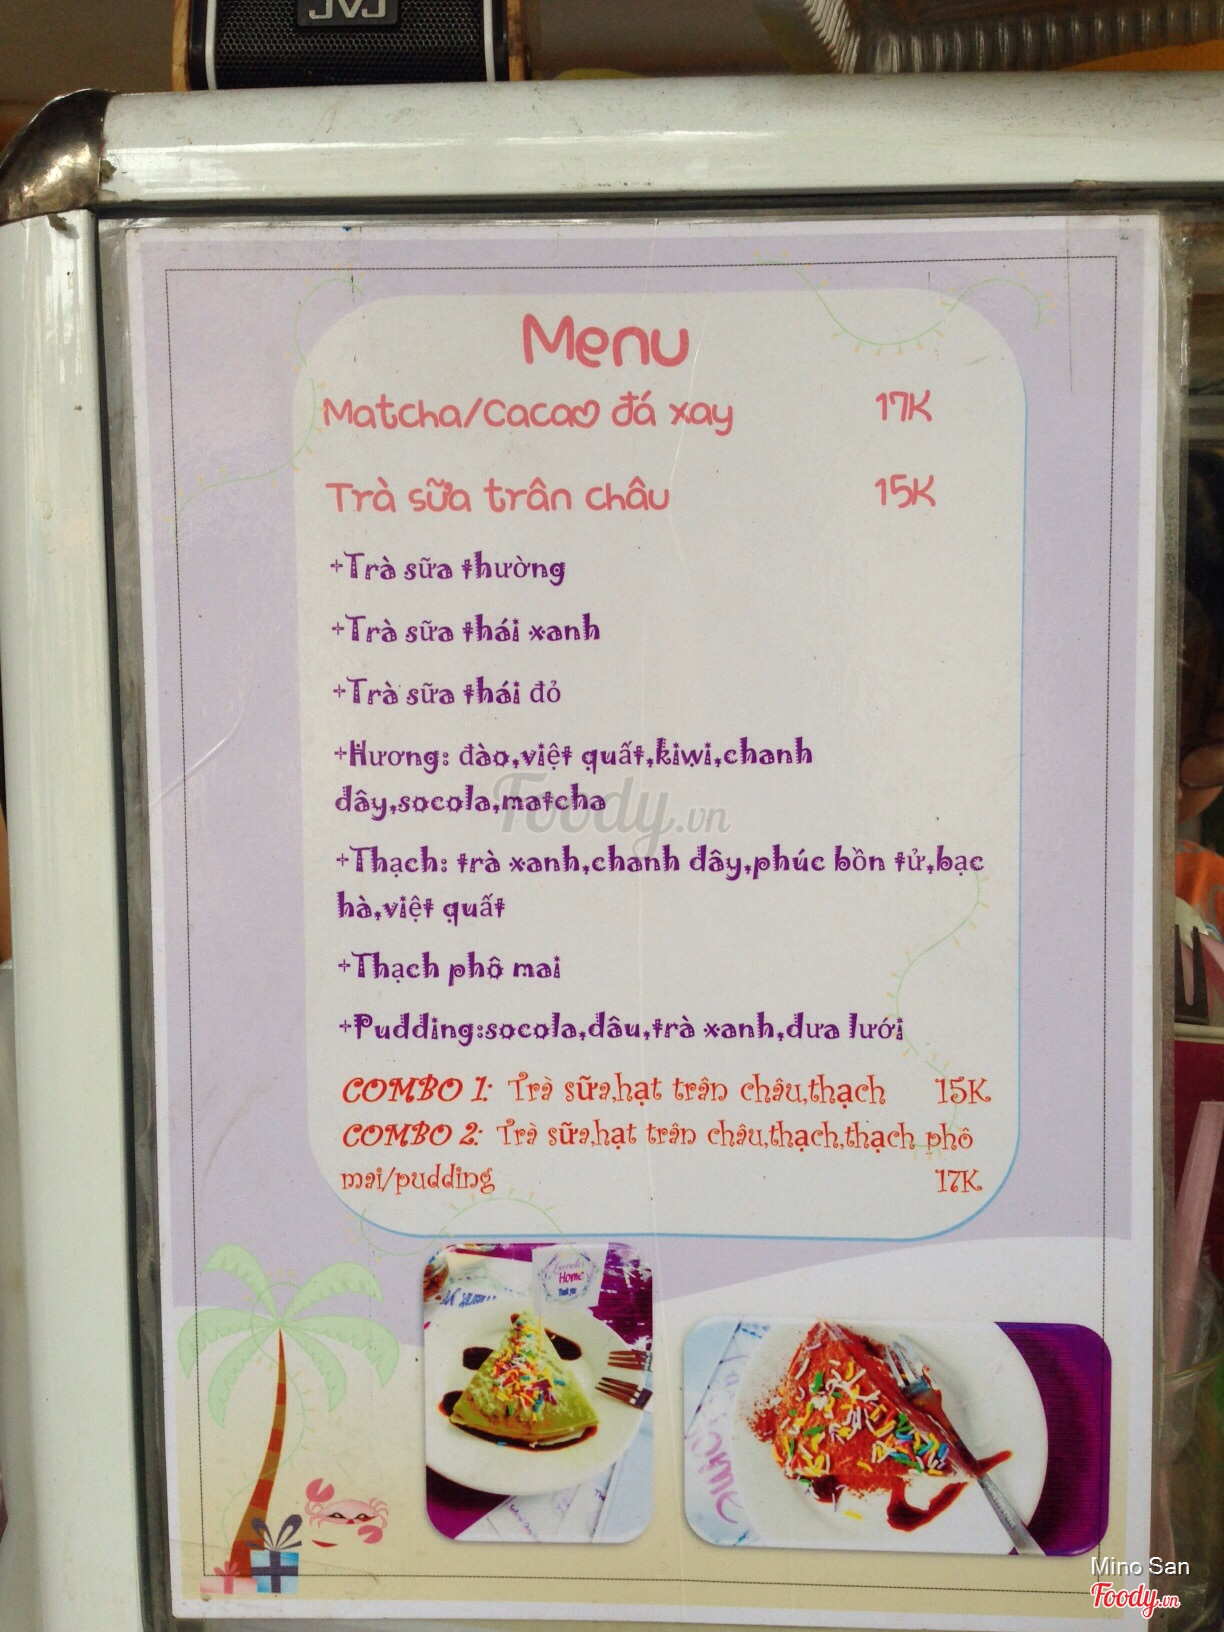 JVJ
Menu
Matcha/Cacao đá xay 17K
Trà sữa trân châu 15K
+Trà sữa thường
+Trà sữa thái xanh
+Trà sữa thái đỏ
+Hương: đào,việt quất,kiwi,chanh
dây,socola,matcha
+Thạch: trà xanh,chanh dây,phúc bồn tử,bạc
hà,việt quất
+Thạch phô mai
+Pudding:socola,dâu,trà xanh,dưa lưới
COMBO 1: Trà sữa,hạt trân châu,thạch 15K
COMBO 2: Trà sữa,hạt trân châu,thạch,thạch phô
mai/pudding 17K
Foody.vn
Home
Thank you
Mino San
Foody.vn